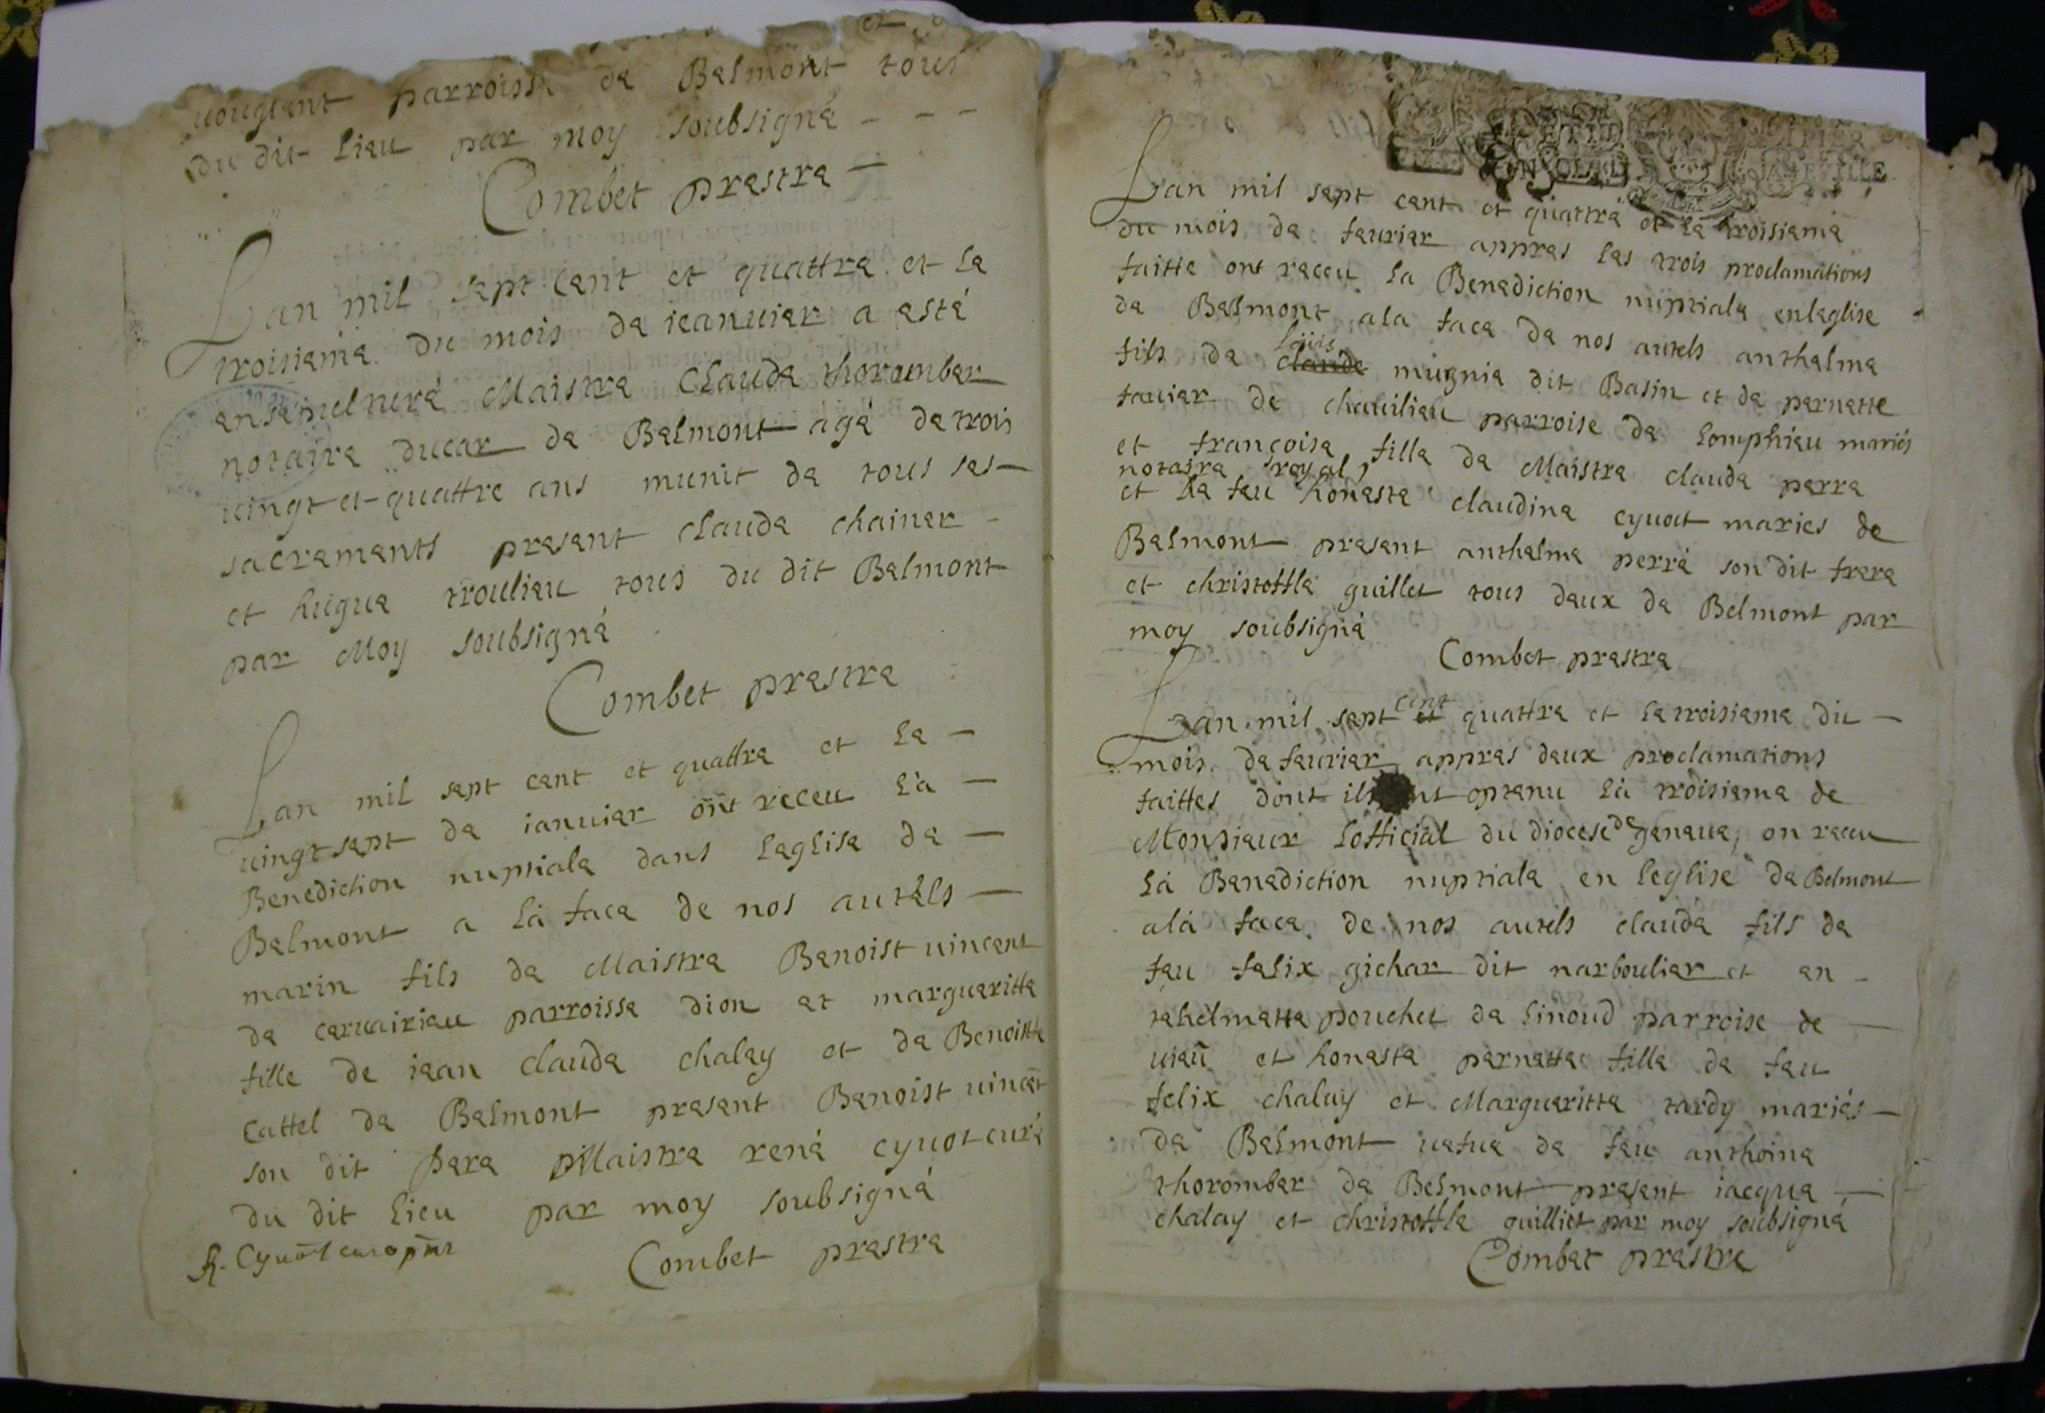 et
uougient parroisse de Belmont tous
du dit lieu par moy soubsigné - - -
Combet prestre -
Lan mil sept cent et quattre et le
troisieme du mois de ieanuier a esté
enseuelueré Maistre Claude thorumber
notaire ducar de Belmont agé de trois
uingt et quattre ans munit de tous ses -
sacrements present claude chainer -
et hugue troulieu tous du dit Belmont
par Moy soubsigné
Combet prestre
Lan mil sept cent et quattre et le -
uingt sept de ianuier ont receu la -
Benediction nuptiale dans leglise de -
Belmont a la face de nos autels -
marin fils de Maistre Benoist uincent
de ceruairieu parroisse dion et margueritte
fille de iean claude chaley et de Benoitte
Cattel de Belmont present Benoist uincet
son dit pere Maistre rené cyuot curé
du dit lieu par moy soubsigné
R. Cyuot
Combet prestre
Lan mil sept cent et quattre et le troisieme
du mois de feurier appres les trois proclamations
faitte ont receu la Benediction nuptiale enleglise
de Belmont ala face de nos autels anthelme
loüis
fils de claude mugnie dit Basin et de pernette
fauier de chauilieu parroise de lomphieu mariés
et françoise fille de Maistre claude perre
notaire royal
et de feu honeste claudine cyuot maries de
Belmont present anthelme perré son dit frere
et christoffle guillet tous deux de Belmont par
moy soubsigné
Combet prestre
cent
Lan mil sept et quattre et le troisieme du -
mois de feurier appres deux proclamations
faittes dont ils ont optenu la troisieme de
Monsieur lofficial du diocese de geneue, on receu
la Benediction nuptiale en leglise de Belmont
ala face de nos autels claude fils de
feu felix gichar dit narboulier et an -
tehelmette pouchet de linoud parroise de -
uieu et honeste pernette fille de feu
felix chaluy et Margueritte tardy mariés -
de Belmont uefue de feu anthoine
thoromber de Belmont present iacque -
chalay et christoffle guilliet par moy soubsigné
Combet prestre